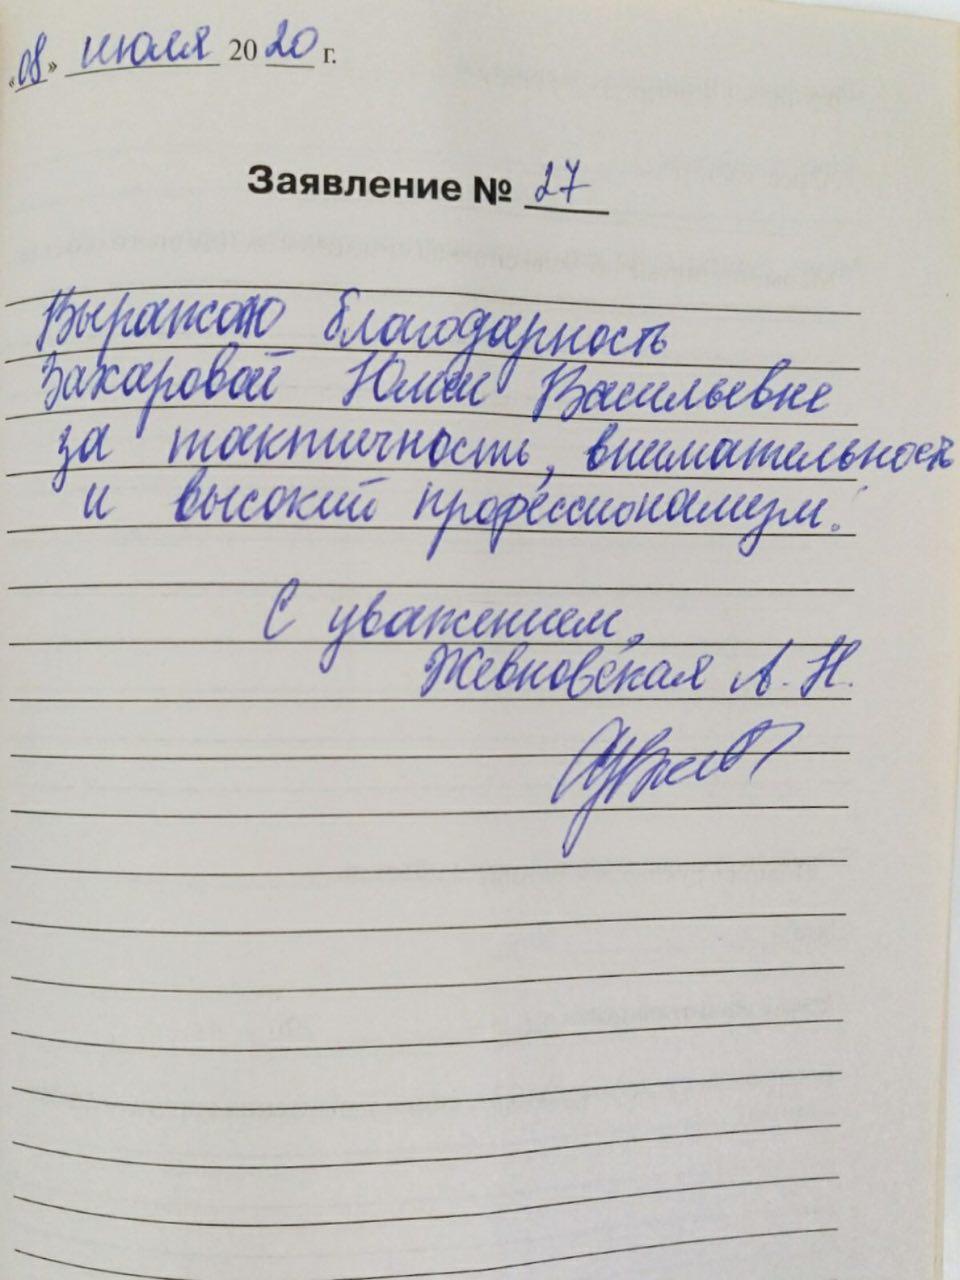 «08» июля 2020 г.
Заявление № 27
Выражаю благодарность
Захаровой Юлии Васильевне
за тактичность, внимательность
и высокий профессионализм.
С уважением,
Жевновская А. Н.